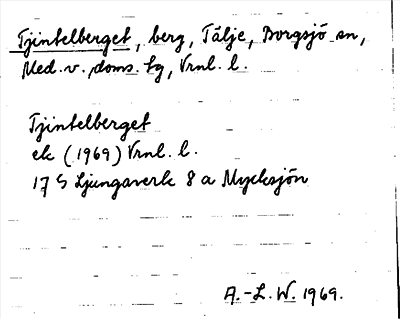 Tjintelberget, berg, Tälje, Borgsjö sn,
Med. v. doms. tg, Vrnl. l.
Tjintelberget
ek (1969) Vrnl. l.
17 G Ljungaverk 8 a Mycksjön
A.-L. W. 1969.